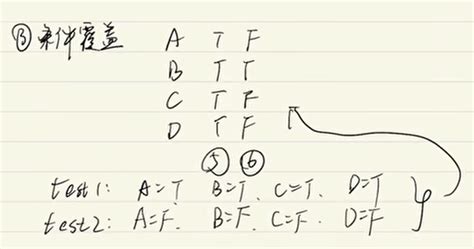 ③条件覆盖 A T F
B T T
C T F
D T F
⑤ ⑥
test1: A=T B=T. C=T. D=T
test2: A=F. B=F. C=F. D=F